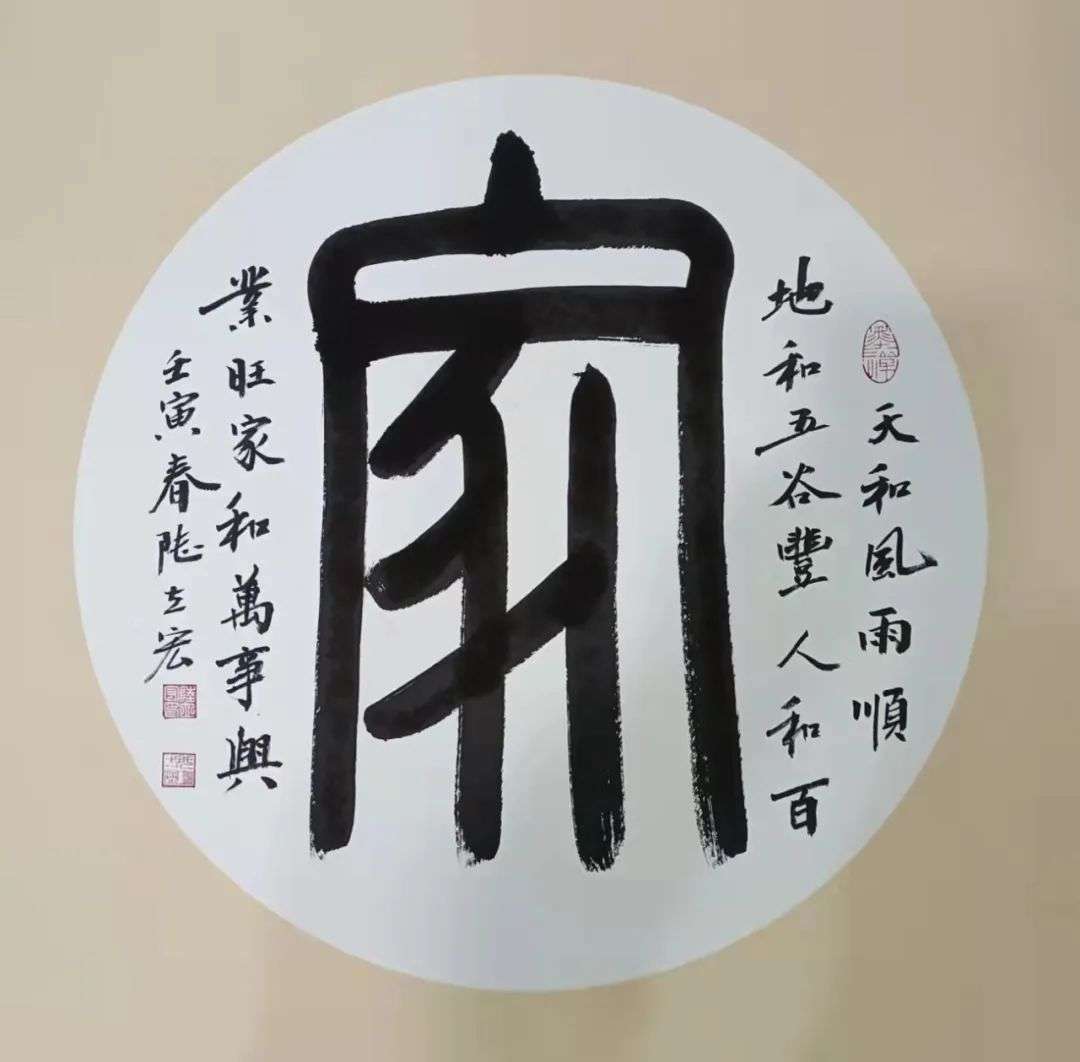 天和風雨順
地和五谷豐人和百
家
業旺家和萬事興
壬寅春陸立宏